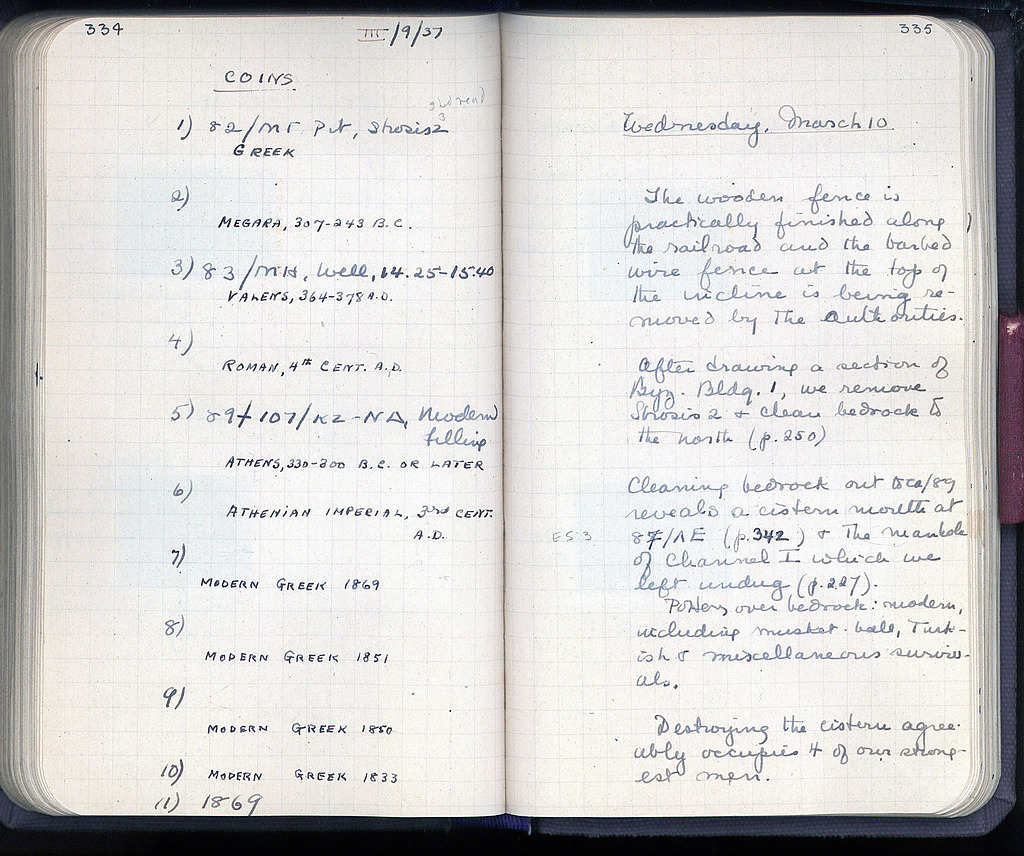 334
III/9/37
COINS
2nd rend
3
1) 82/ΜΓ Pit, Strosis 2
GREEK
2)
MEGARA, 307-243 B.C.
3) 83/ΜΗ, Well, 14.25-15.40
VALENS, 364-378 A.D.
4)
ROMAN, 4th CENT. A.D.
5) 89+107/ΚΖ-ΝΔ, Modern
filling
ATHENS, 330-300 B.C. OR LATER
6)
ATHENIAN IMPERIAL, 3rd CENT.
A.D.
7)
MODERN GREEK 1869
8)
MODERN GREEK 1851
9)
MODERN GREEK 1850
10) MODERN GREEK 1833
11) 1869
335
Wednesday, March 10
The wooden fence is
practically finished along
the railroad and the barbed
wire fence at the top of
the incline is being re-
moved by the authorities.
After drawing a section of
Byz. Bldg. 1, we remove
Strosis 2 + clean bedrock to
the north (p. 250)
Cleaning bedrock out to ca/89
reveals a cistern mouth at
E 5:3 87/ΛΕ (p. 342) + the manhole
of Channel I which we
left undug (p. 227).
Pottery over bedrock: modern,
including musket-ball, Turk-
ish & miscellaneous surviv-
als.
Destroying the cistern agree-
ably occupies 4 of our strong-
est men.